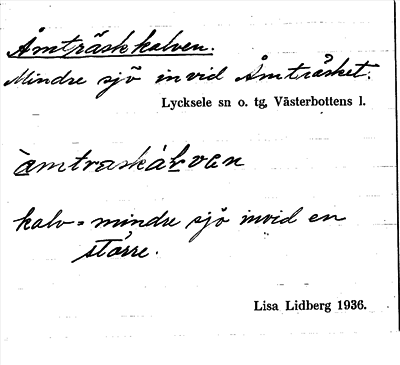 Åmträskkalven.
Mindre sjö invid Åmträsket.
Lycksele sn o. tg, Västerbottens l.
åmtraskálvan
kalv = mindre sjö invid en
större.
Lisa Lidberg 1936.